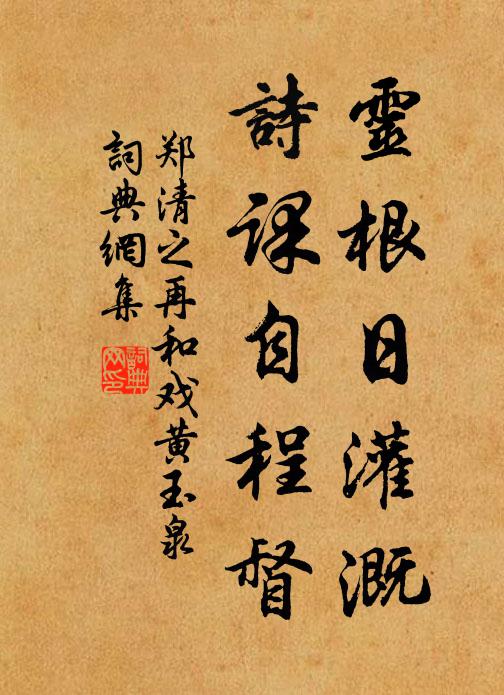 靈根日灌溉
詩課自程督
郑清之再和戏黄玉泉
詞典網集
詞典網印